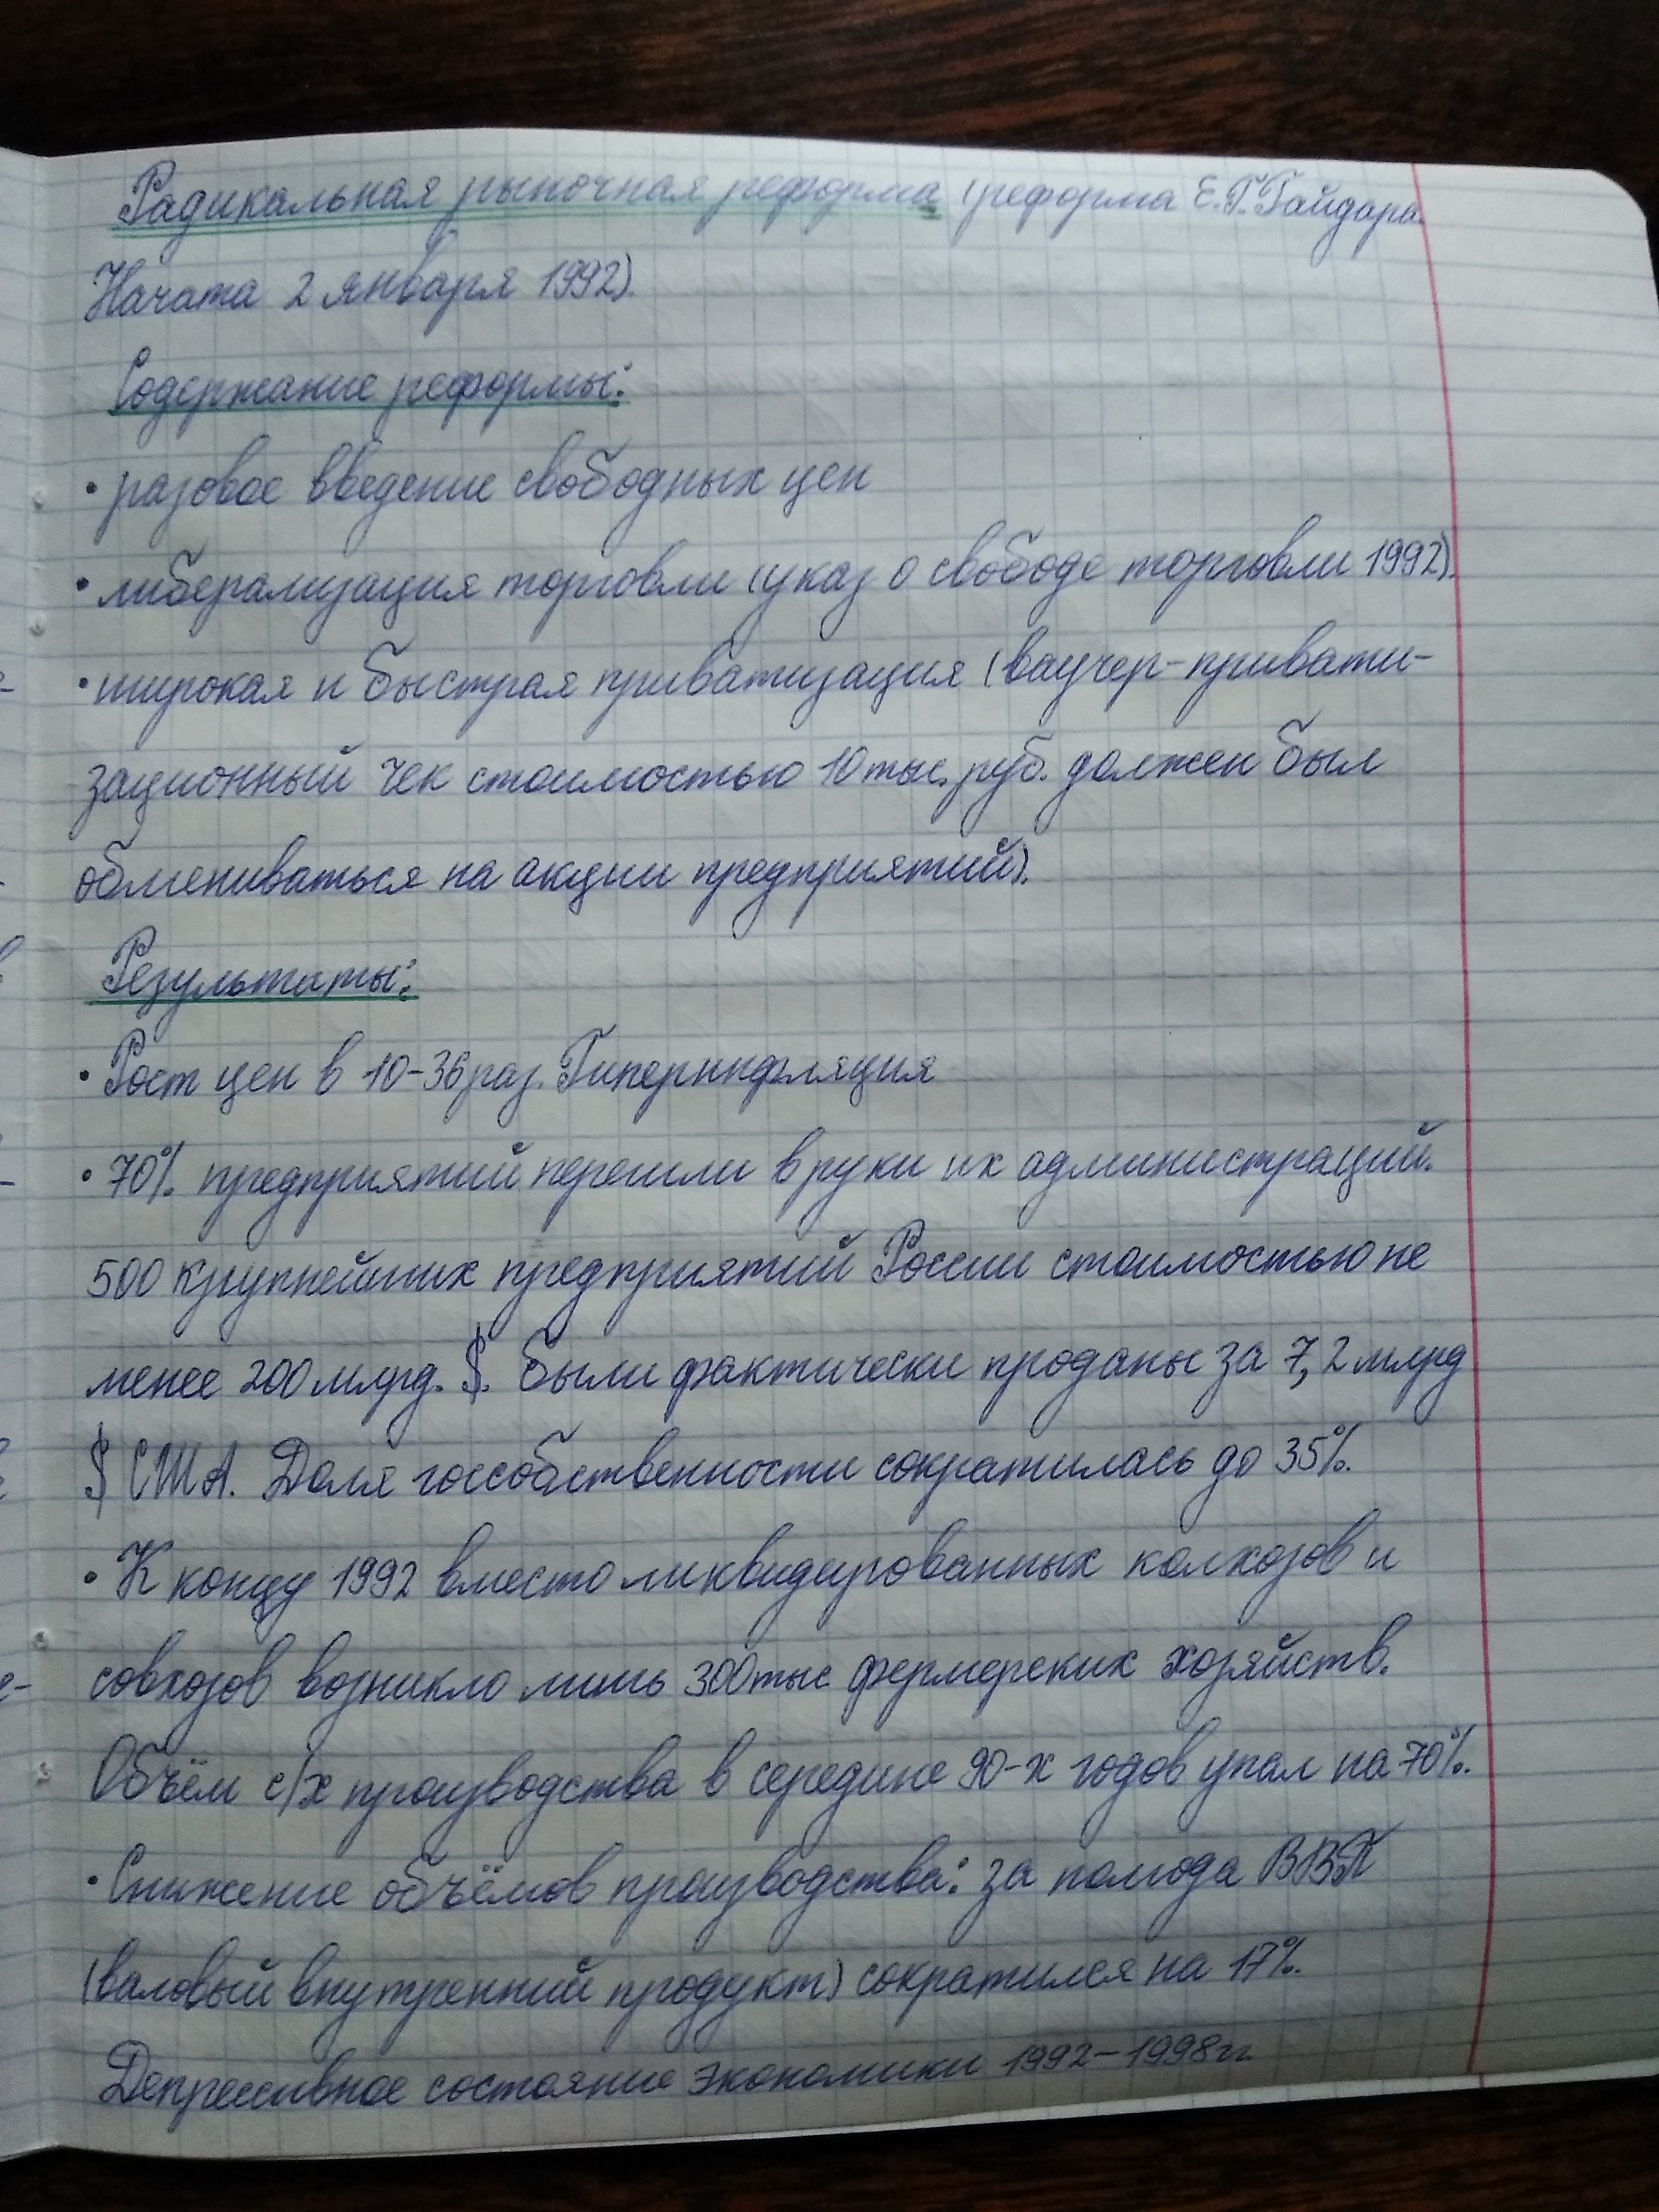 Радикальная рыночная реформа (реформа Е.Г.Гайдара.
Начата 2 января 1992).
Содержание реформы:
• разовое введение свободных цен
• либерализация торговли (указ о свободе торговли 1992).
• широкая и быстрая приватизация (ваучер-привати-
зационный чек стоимостью 10 тыс. руб. должен был
обмениваться на акции предприятий).
Результаты:
• Рост цен в 10-36 раз. Гиперинфляция
• 70% предприятий перешли в руки их администраций.
500 крупнейших предприятий России стоимостью не
менее 200 млрд. $. были фактически проданы за 7,2 млрд
$ США. Доля госсобственности сократилась до 35%.
• К концу 1992 вместо ликвидированных колхозов и
совхозов возникло лишь 300 тыс. фермерских хозяйств.
Объём с/х производства в середине 90-х годов упал на 70%.
• Снижение объёмов производства: за полгода ВВП
(валовый внутренний продукт) сократился на 17%.
Депрессивное состояние экономики 1992-1998гг